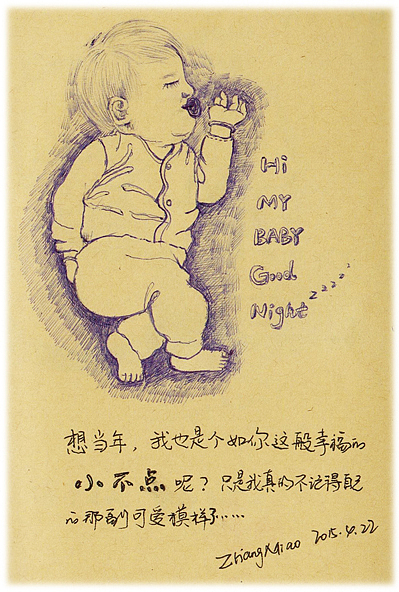 Hi
MY
BABY
Good
Night zzzzz
想当年，我也是个如你这般幸福的
小不点呢？只是我真的不记得自己
的那副可爱模样了……
ZhangXiao 2015.4.22